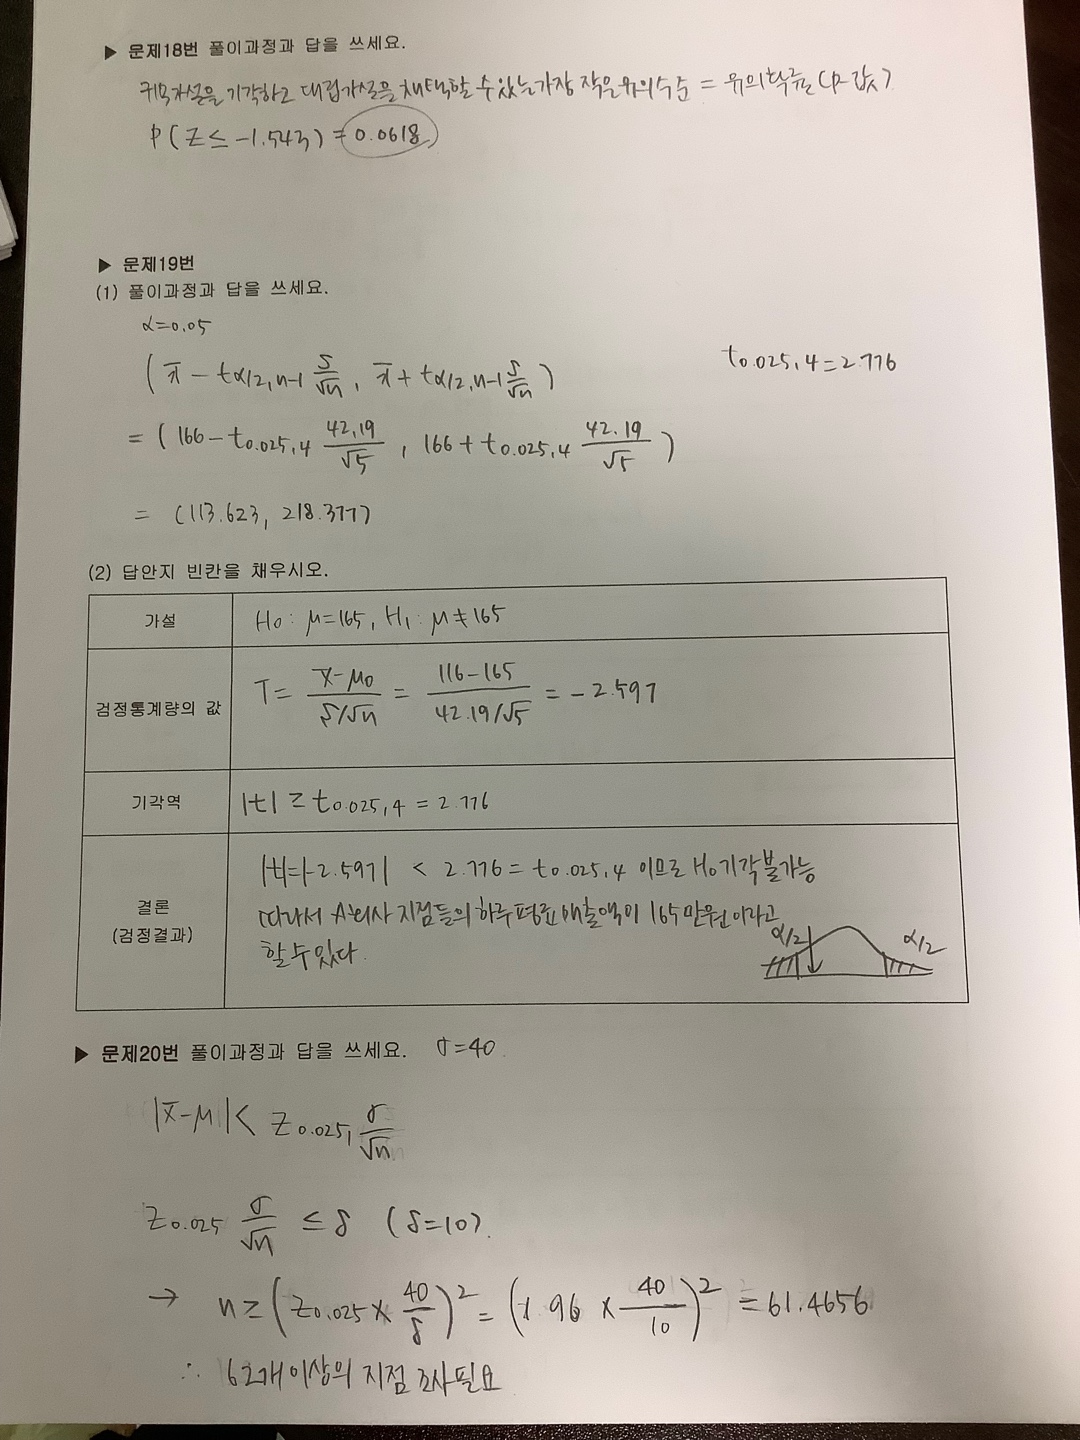 ▶ 문제18번 풀이과정과 답을 쓰세요.
귀무가설을 기각하고 대립가설을 채택할 수 있는 가장 작은 유의수준 = 유의확률 (p-값)
P(Z ≤ -1.543) = 0.0618
▶ 문제19번
(1) 풀이과정과 답을 쓰세요.
α=0.05
(x̄ - tα/2, n-1 S/√n, x̄ + tα/2, n-1 S/√n) t0.025, 4 = 2.776
= (166 - t0.025, 4 42.19/√5, 166 + t0.025, 4 42.19/√5)
= (113.623, 218.377)
(2) 답안지 빈칸을 채우시오.
가설 H0: μ=165, H1: μ≠165
검정통계량의 값 T = (x̄-μ0)/(S/√n) = (116-165)/(42.19/√5) = -2.597
기각역 |t| ≥ t0.025, 4 = 2.776
결론
(검정결과)
|t|=|-2.597| < 2.776 = t0.025, 4 이므로 H0 기각 불가능
따라서 A회사 지점들의 하루 평균 매출액이 165만원이라고
할 수 있다.
α/2 α/2
▶ 문제20번 풀이과정과 답을 쓰세요. σ=40
|x̄-μ| < Z0.025, σ/√n
Z0.025 σ/√n ≤ δ (δ=10)
→ n ≥ (Z0.025 × 40/δ)² = (1.96 × 40/10)² = 61.4656
∴ 62개 이상의 지점 조사 필요